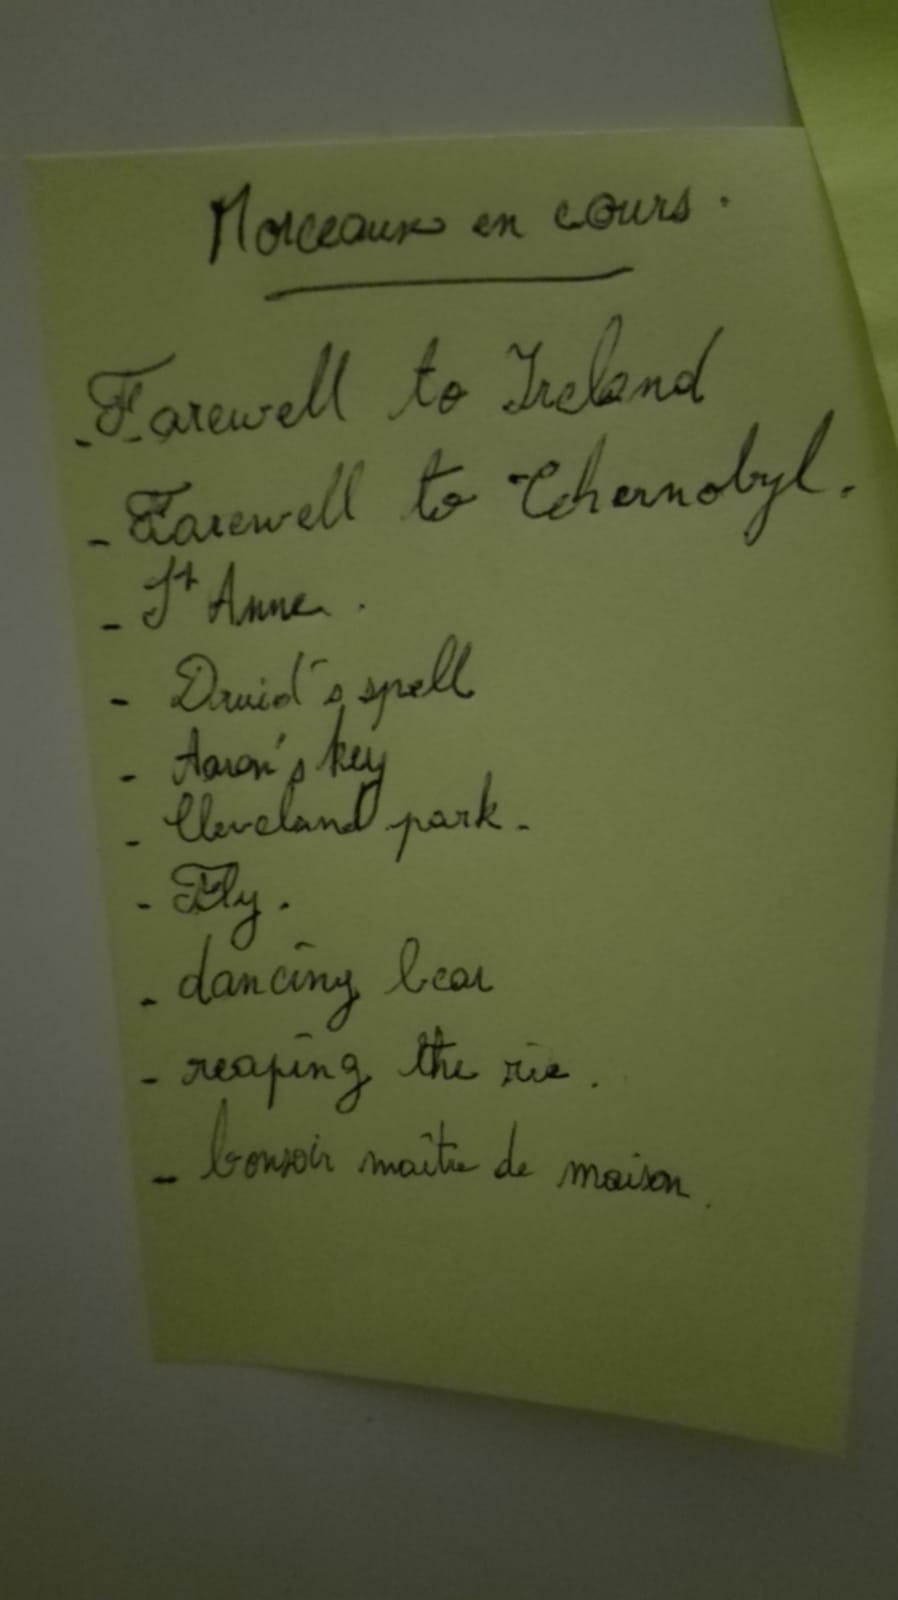 Morceaux en cours.
- Farewell to Ireland
- Farewell to Chernobyl.
- St Anne.
- Druid's spell
- Aaron's key
- Cleveland park.
- Fly.
- dancing bear
- reaping the rie.
- bonsoir maître de maison.